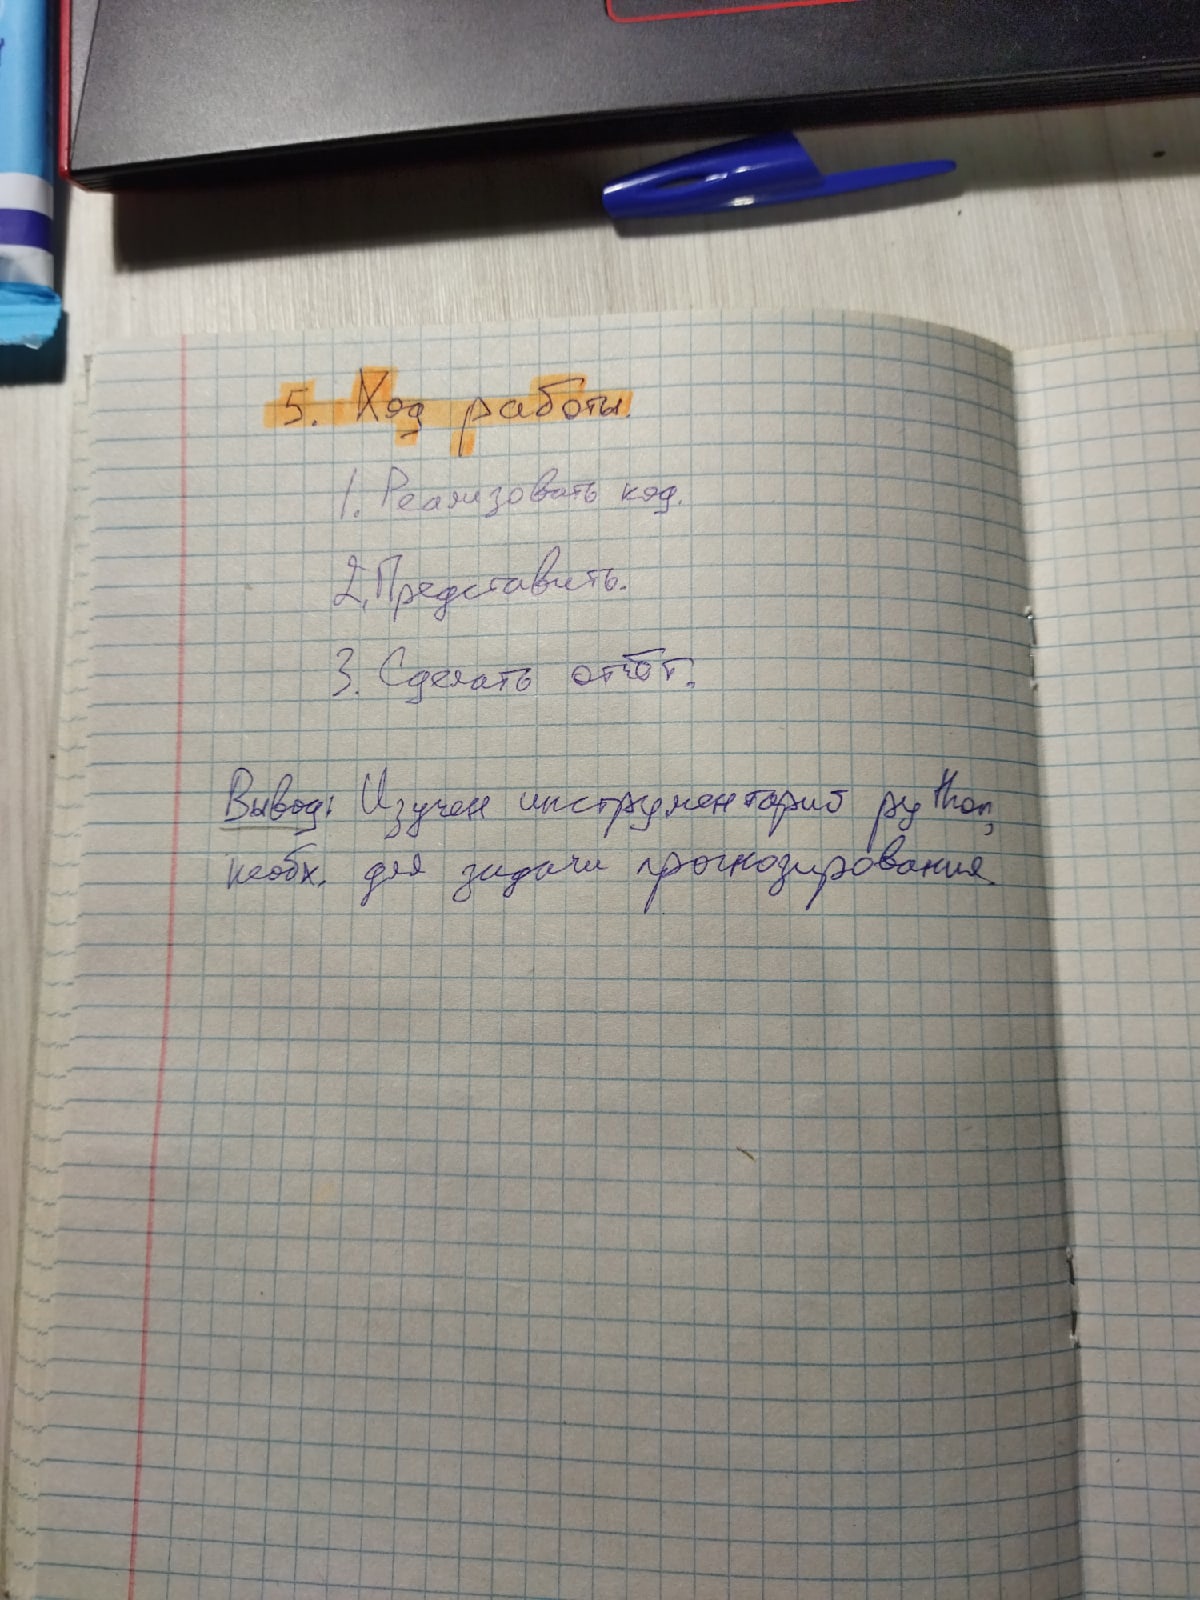 5. Ход работы.
1. Реализовать код.
2. Представить.
3. Сделать отчёт.
Вывод: Изучен инструментарий python,
необх. для задачи прогнозирования.